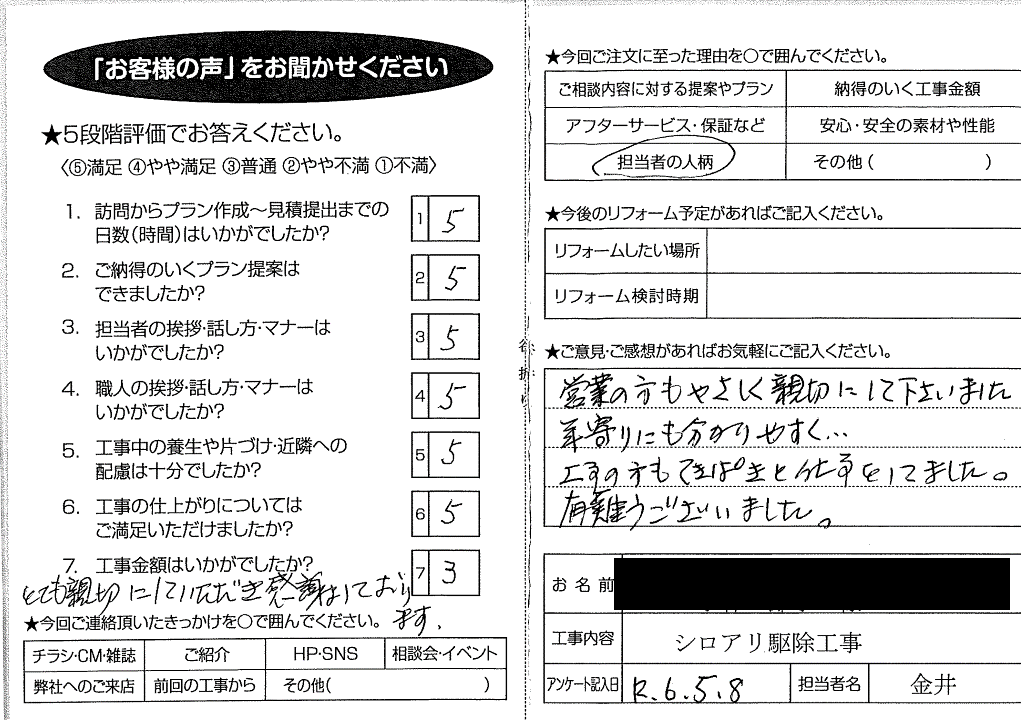 「お客様の声」をお聞かせください
★5段階評価でお答えください。
〈⑤満足 ④やや満足 ③普通 ②やや不満 ①不満〉
1. 訪問からプラン作成～見積提出までの
日数(時間)はいかがでしたか?
1 5
2. ご納得のいくプラン提案は
できましたか?
2 5
3. 担当者の挨拶・話し方・マナーは
いかがでしたか?
3 5
4. 職人の挨拶・話し方・マナーは
いかがでしたか?
4 5
5. 工事中の養生や片づけ・近隣への
配慮は十分でしたか?
5 5
6. 工事の仕上がりについては
ご満足いただけましたか?
6 5
7. 工事金額はいかがでしたか?
7 3
とても親切にしていただき感謝しており
ます.
★今回ご連絡頂いたきっかけを〇で囲んでください。
チラシ・CM・雑誌 ご紹介 HP・SNS 相談会・イベント
弊社へのご来店 前回の工事から その他( )
★今回ご注文に至った理由を〇で囲んでください。
ご相談内容に対する提案やプラン 納得のいく工事金額
アフターサービス・保証など 安心・安全の素材や性能
担当者の人柄 その他( )
★今後のリフォーム予定があればご記入ください。
リフォームしたい場所
リフォーム検討時期
★ご意見・ご感想があればお気軽にご記入ください。
営業の方もやさしく親切にして下さいました
年寄りにも分かりやすく…
工事の方もてきぱきと仕事をしてました。
有難うございました。
お名前
工事内容 シロアリ駆除工事
アンケート記入日 R.6.5.8 担当者名 金井